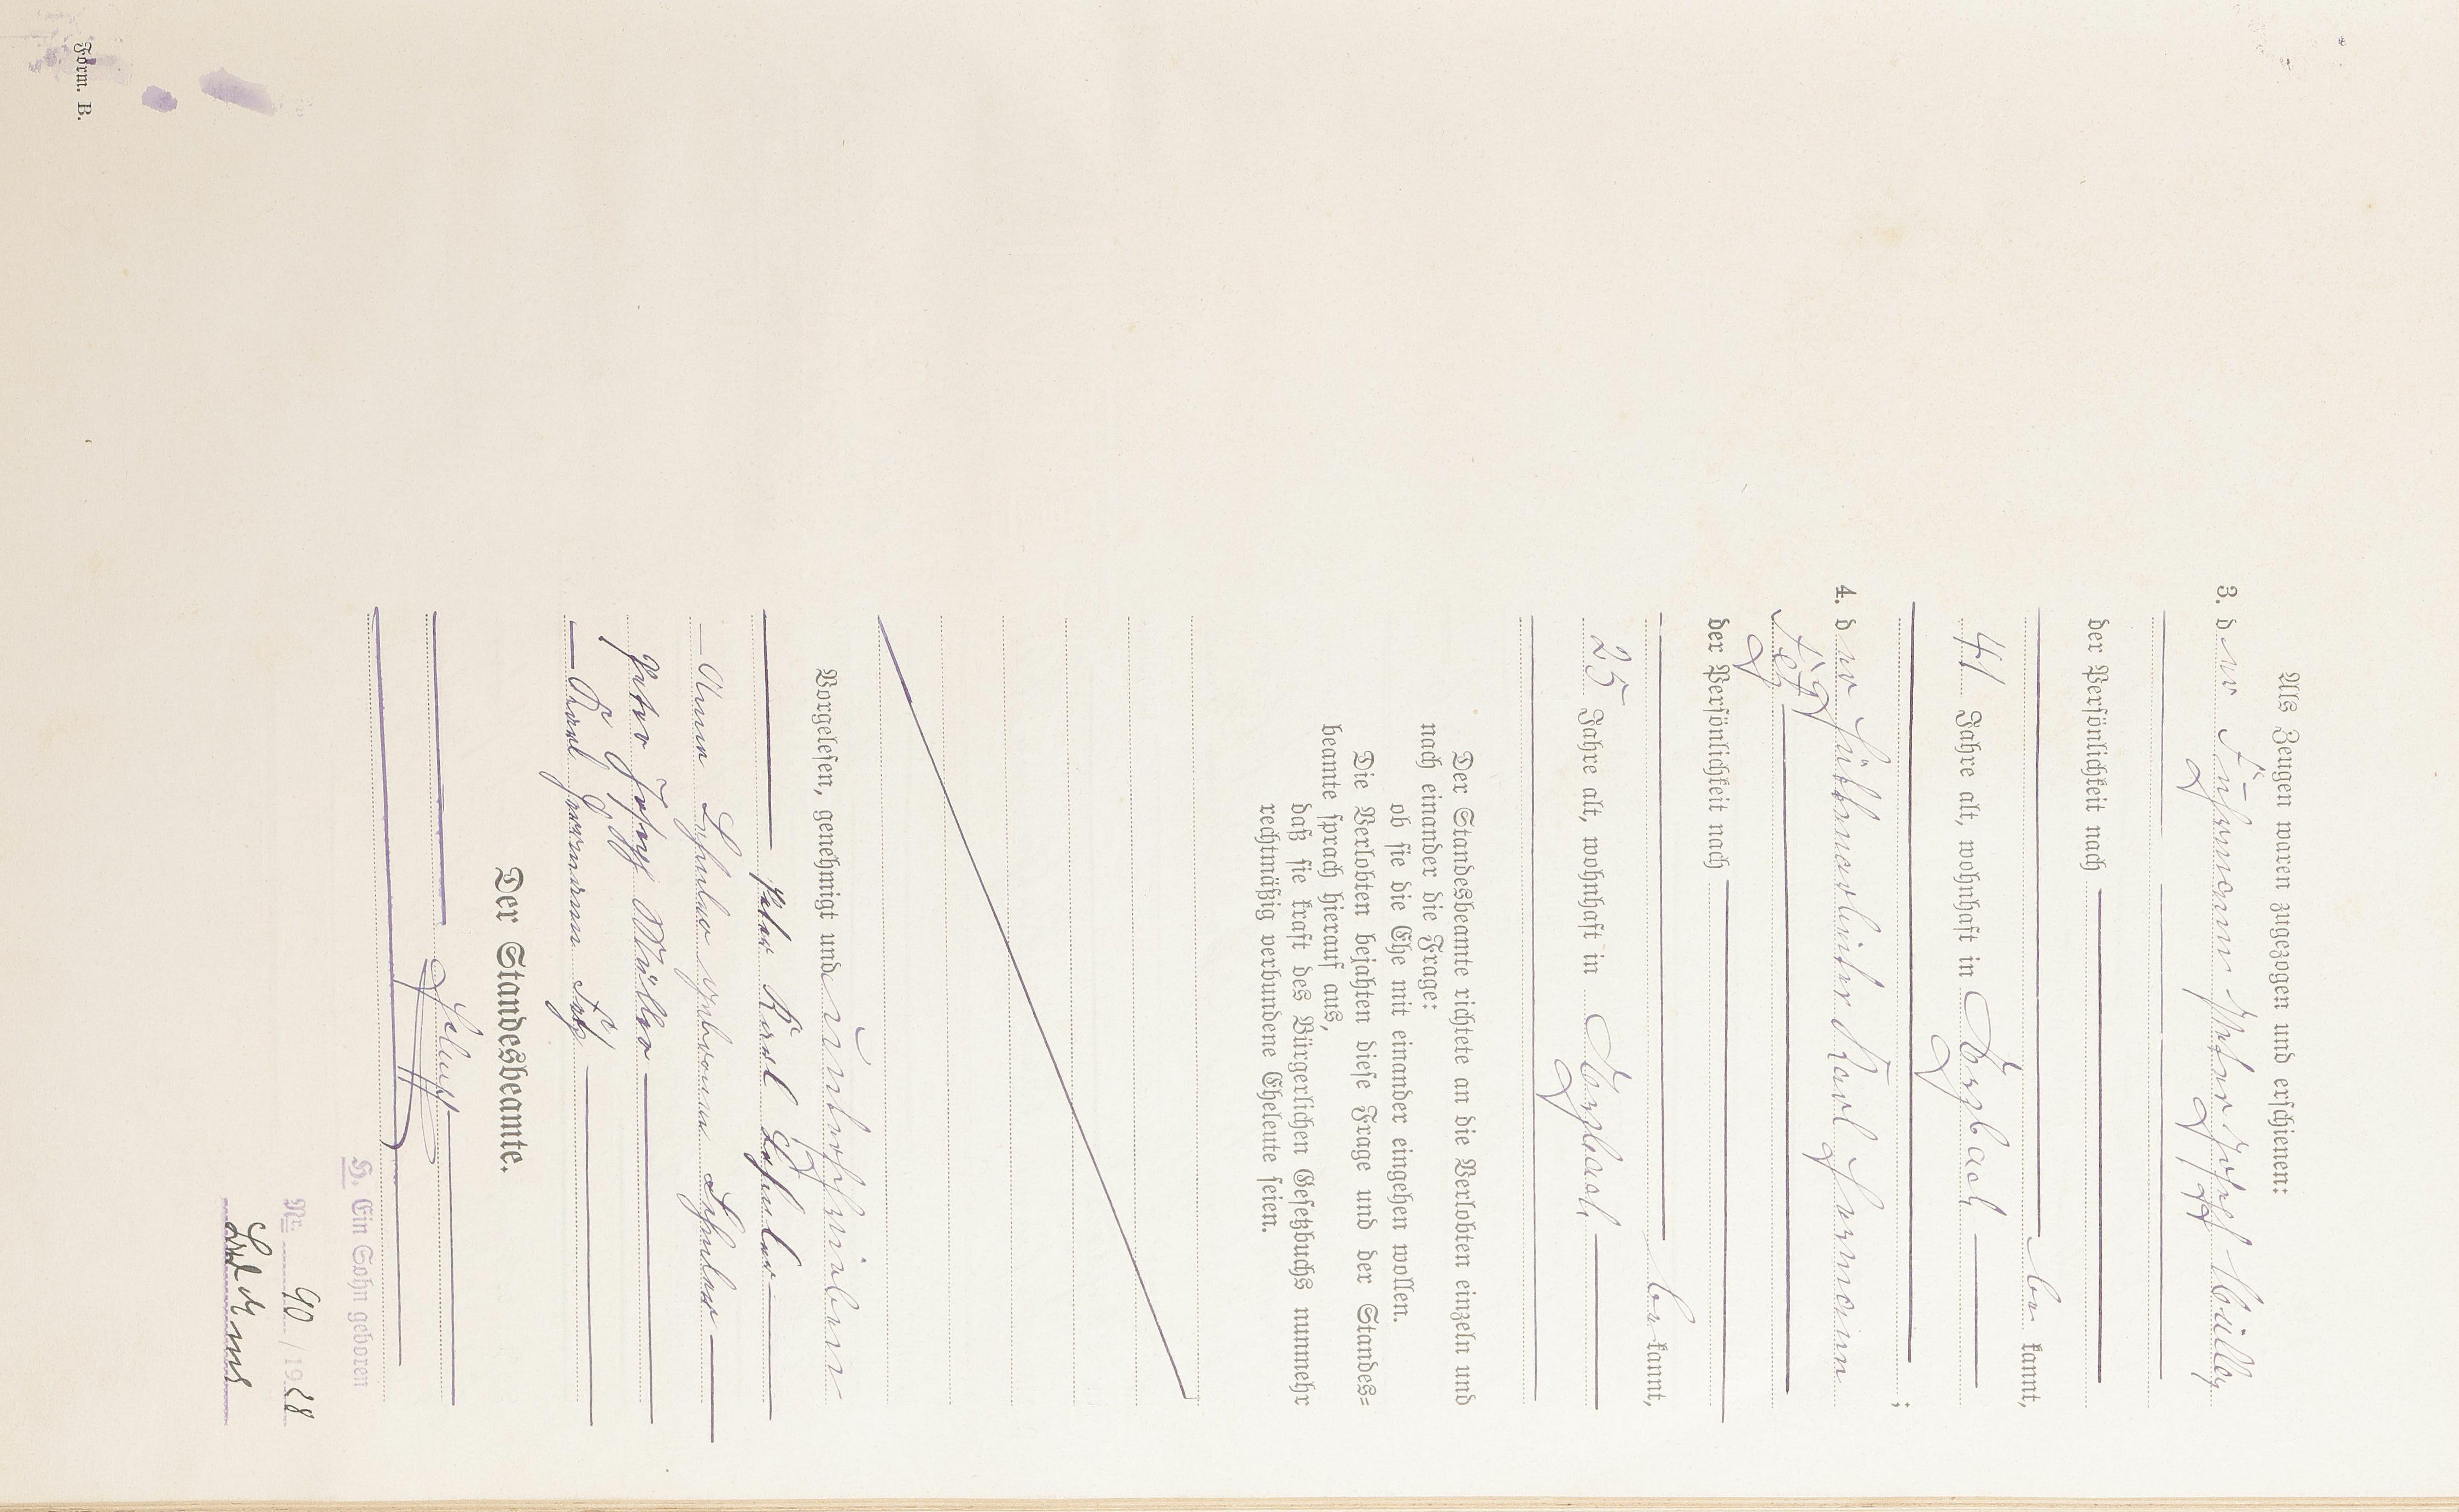 Als Zeugen waren zugezogen und erschienen:
3. der Fuhrmann Peter Josef Müller
der Persönlichkeit nach
be kannt,
41 Jahre alt, wohnhaft in
4. der Hüttenarbeiter Karl Hermann
;
der Persönlichkeit nach
be kannt,
25 Jahre alt, wohnhaft in
Der Standesbeamte richtete an die Verlobten einzeln und
nach einander die Frage:
ob sie die Ehe mit einander eingehen wollen.
Die Verlobten bejahten diese Frage und der Standes=
beamte sprach hierauf aus,
daß sie kraft des Bürgerlichen Gesetzbuchs nunmehr
rechtmäßig verbundene Eheleute seien.
Vorgelesen, genehmigt und unterschrieben
Peter Karl
Anna geborene
Peter Joseff Müller
Karl Hermann
Der Standesbeamte.
H. Ein Sohn geboren
Nr. 40 / 1928
Form. B.